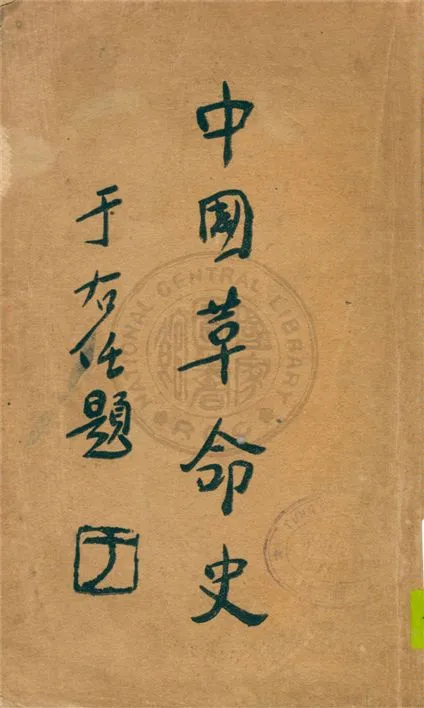 中國革命史
于右任題
于
NATIONAL CENTRAL LIBRARY
R.O.C.